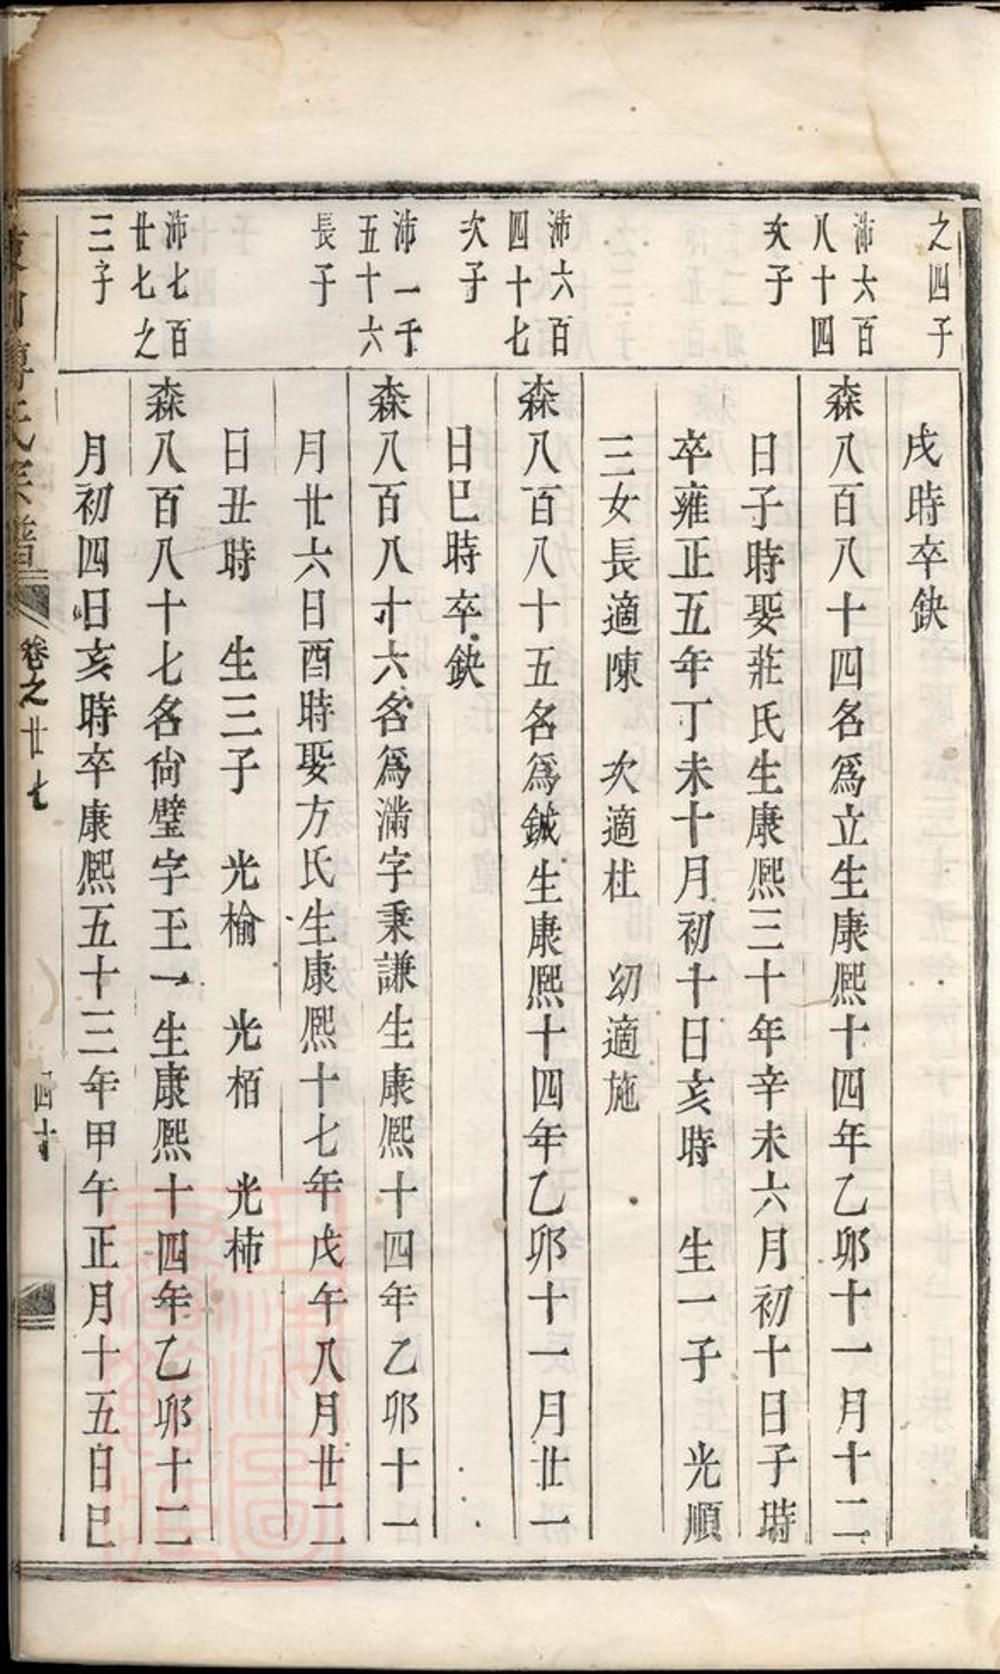 之四子
戌時卒缺
沛六百
八十四
次子
森八百八十四名爲立生康熙十四年乙卯十一月十二
日子時娶莊氏生康熙三十年辛未六月初十日子時
卒雍正五年丁未十月初十日亥時　生一子　光順
三女長適陳　次適杜　幼適施
沛六百
四十七
次子
森八百八十五名爲鍼生康熙十四年乙卯十一月廿一
日巳時卒缺
沛一千
五十六
長子
森八百八十六名爲滿字秉謙生康熙十四年乙卯十一
月廿六日酉時娶方氏生康熙十七年戊午八月廿二
日丑時　生三子　光榆　光栢　光柿
沛七百
廿七之
三子
森八百八十七名尙璧字王一生康熙十四年乙卯十二
月初四日亥時卒康熙五十三年甲午正月十五日巳
氏宗譜
卷之廿七
四十